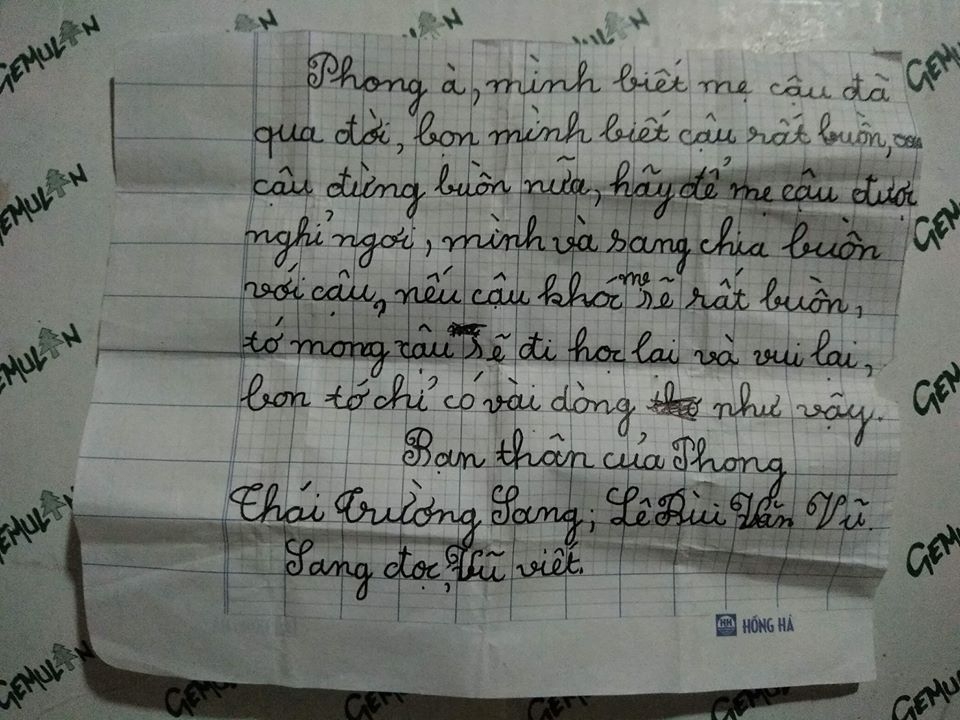 Phong à, mình biết mẹ cậu đã
qua đời, bọn mình biết cậu rất buồn,
cậu đừng buồn nữa, hãy để mẹ cậu được
nghỉ ngơi, mình và sang chia buồn
với cậu, nếu cậu khóc mẹ sẽ rất buồn,
tớ mong cậu sẽ đi học lại và vui lại,
bọn tớ chỉ có vài dòng như vậy.
Bạn thân của Phong
Thái Trường Sang; Lê Bùi Văn Vũ.
Sang đọc, Vũ viết.
HH HỒNG HÀ
GEMULAN
GEMULAN
GEMULAN
GEMULAN
GEMULAN
GEMULAN
GEMULAN
GEMULAN